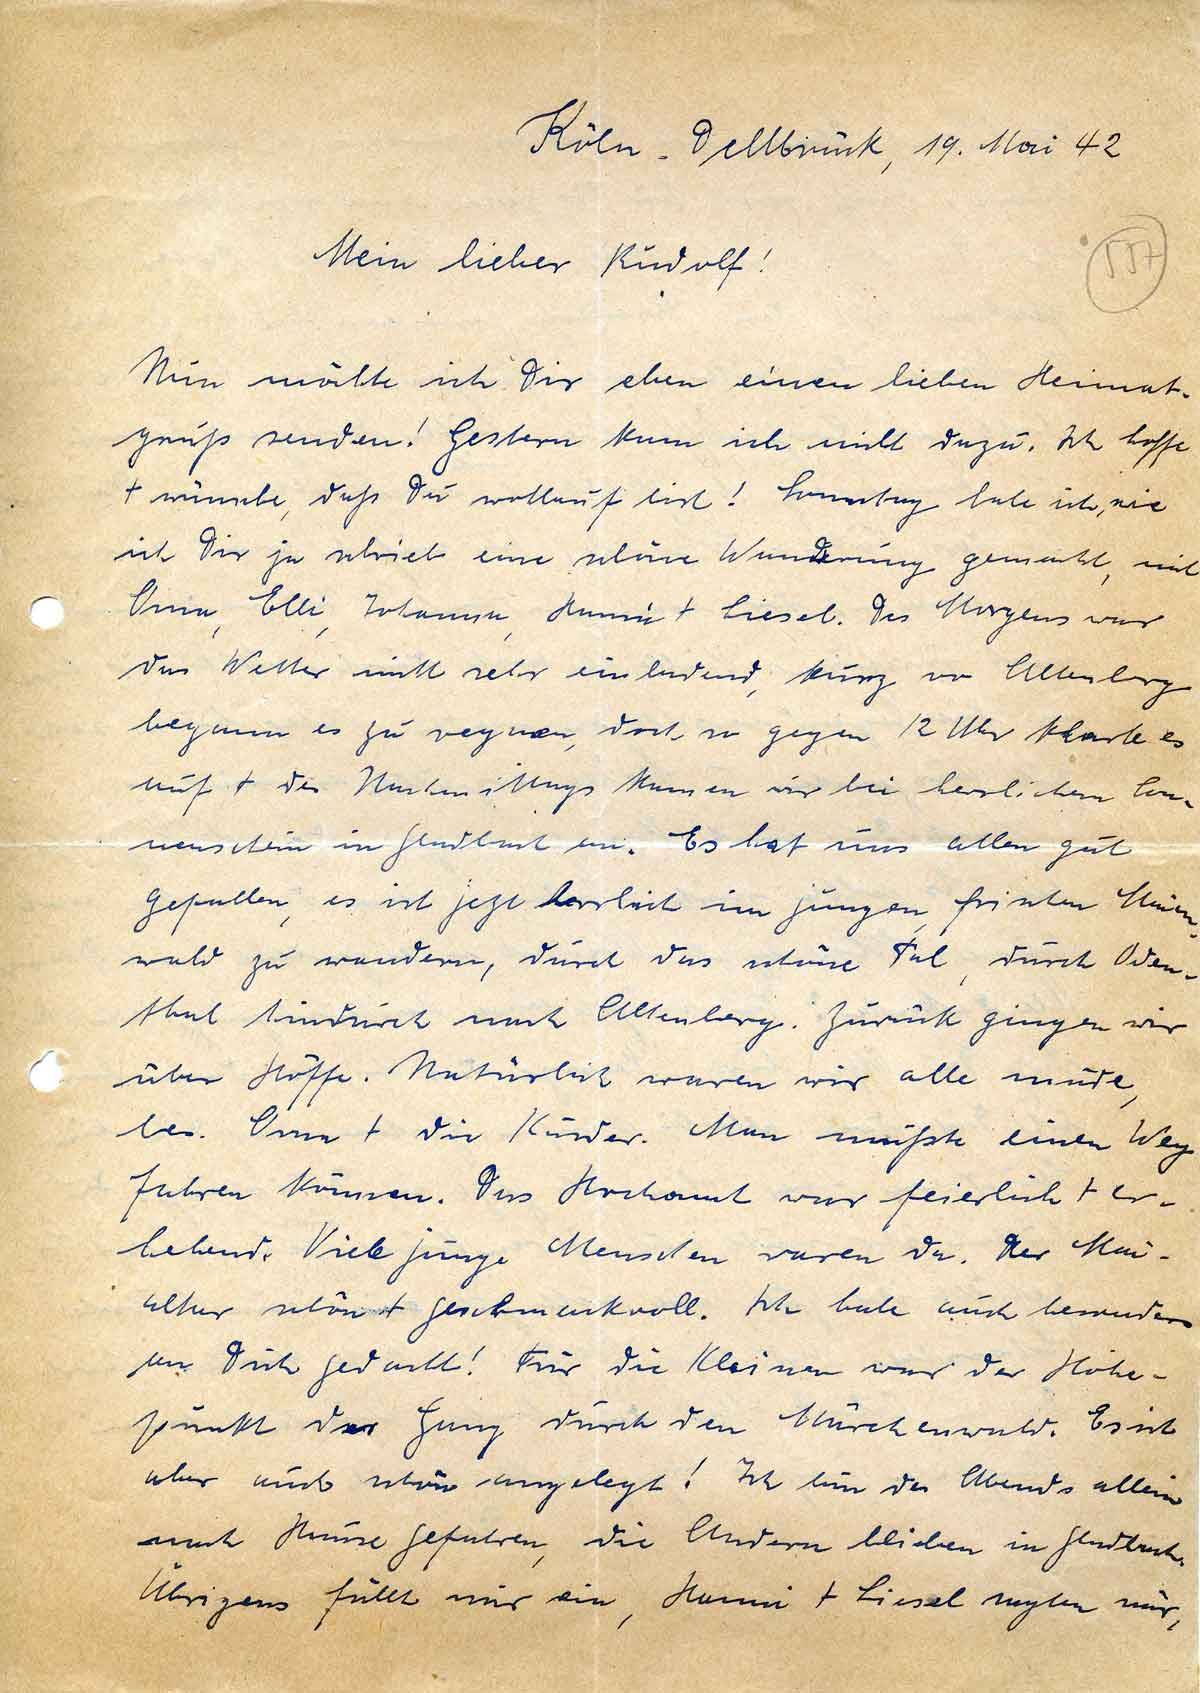 Köln-Dellbrück, 19. Mai 42
557
Mein lieber Rudolf!
Nun möchte ich Dir eben einen lieben Heimat-
gruß senden! Gestern kam ich nicht dazu. Ich hoffe
+ wünsche, daß Du wohlauf bist! Sonntag habe ich, wie
ich Dir ja schrieb eine schöne Wanderung gemacht, mit
Oma, Elli, Johanna, Hanni + Liesel. Des Morgens war
das Wetter nicht sehr einladend, kurz vor Altenberg
begann es zu regnen, doch so gegen 12 Uhr klarte es
auf + des Nachmittags kamen wir bei herrlichem Son-
nenschein in Gladbach an. Es hat uns allen gut
gefallen, es ist jetzt herrlich im jungen, frischen Maien-
wald zu wandern, durch das schöne Tal, durch Oden-
thal hindurch nach Altenberg. Zurück gingen wir
über Höffe. Natürlich waren wir alle müde,
bes. Oma + die Kinder. Man müßte einen Weg
fahren können. Das Hochamt war feierlich + er-
hebend. Viele junge Menschen waren da. Der Mai-
altar schön + geschmackvoll. Ich habe auch besonders
an Dich gedacht! Für die Kleinen war der Höhe-
punkt der Gang durch den Märchenwald. Es ist
aber auch schön angelegt! Ich bin des Abends allein
nach Hause gefahren, die Andern blieben in Gladbach.
Übrigens fällt mir ein, Hanni + Liesel sagten mir,